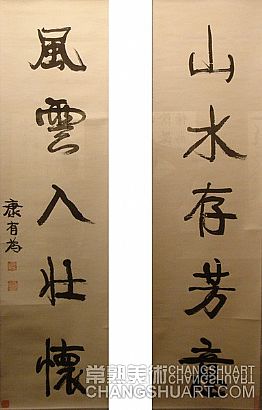 山水存芳意
風雲入壯懷
康有為
常熟美術CHANGSHUART
CHANGSHUART.COM